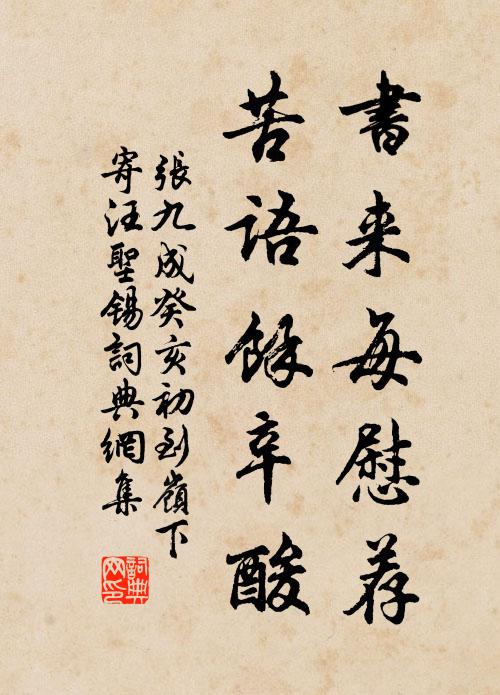 書来每慰荐
苦语餘辛酸
張九成癸亥初到嶺下
寄汪聖錫詞典網集
詞典网印